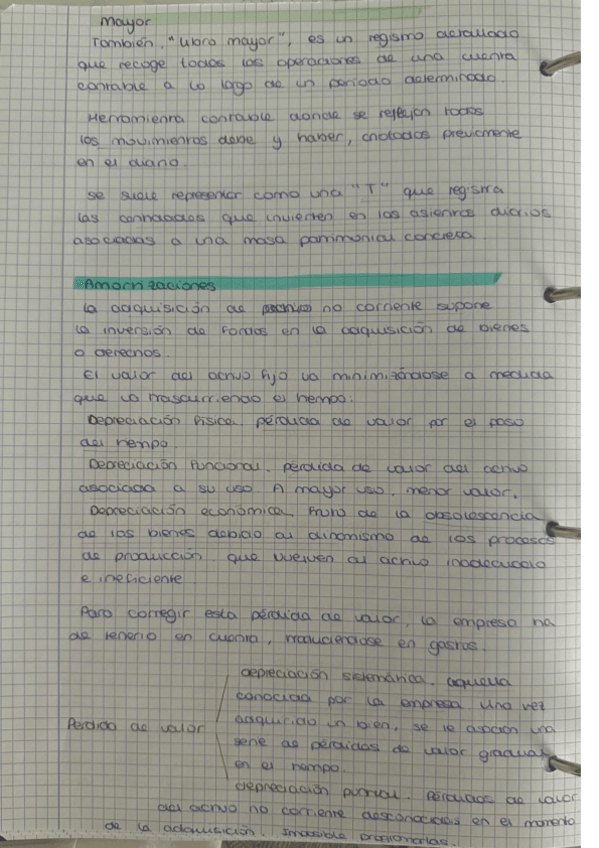 Mayor
También, "Libro mayor", es un registro detallado
que recoge todas las operaciones de una cuenta
contable a lo largo de un período determinado.
Herramienta contable donde se reflejan todos
los movimientos debe y haber, anotados previamente
en el diario.
Se suele representar como una "T" que registra
las cantidades que invierten en los asientos diarios
asociadas a una masa patrimonial concreta
Amortizaciones
La adquisición de no corriente supone
la inversión de fondos en la adquisición de bienes
o derechos.
El valor del activo fijo va minimizándose a medida
que va trascurriendo el tiempo:
Depreciación física, pérdida de valor por el paso
del tiempo.
Depreciación funcional, pérdida de valor del activo
asociada a su uso. A mayor uso, menor valor.
Depreciación económica, fruto de la obsolescencia
de los bienes debido al dinamismo de los procesos
de producción que vuelven al activo inadecuado
e ineficiente
Para corregir esta pérdida de valor, la empresa ha
de tenerlo en cuenta, traduciéndose en gastos.
Perdida de valor
depreciación sistemática, aquella
conocida por la empresa una vez
adquirido un bien, se le asocian una
serie de pérdidas de valor gradual
en el tiempo.
depreciación puntual. Pérdidas de valor
del activo no corriente desconocidas en el momento
de la adquisición. Imposible